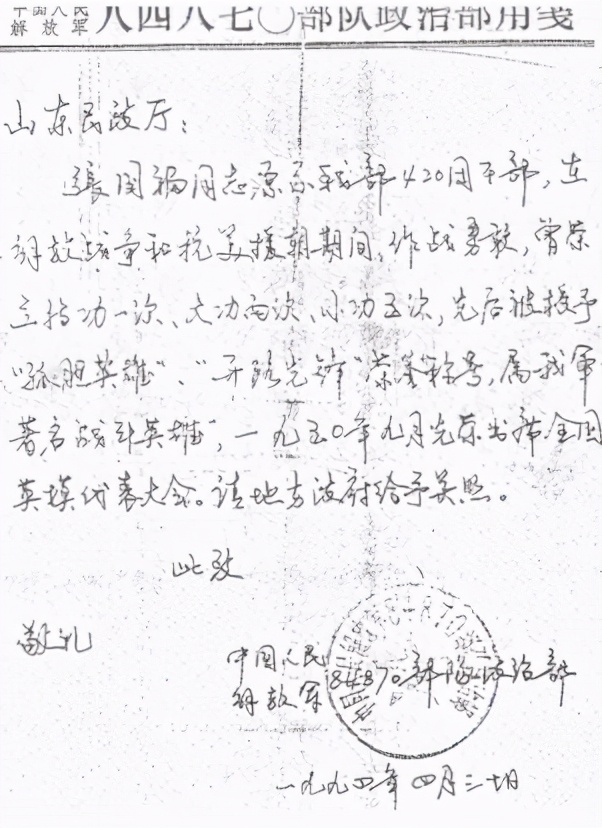 中国人民
解放军
八四八七〇部队政治部用笺
山东民政厅：
张国福同志原系我部420团干部，在
解放战争和抗美援朝期间，作战勇敢，曾荣
立特功一次、大功两次、小功五次，先后被授予
“孤胆英雄”、“开路先锋”荣誉称号，属我军
著名“战斗英雄”，一九五〇年九月光荣出席全国
英模代表大会。请地方政府给予关照。
此致
敬礼
中国人民
解放军
84870部队政治部
一九九四年四月三十日